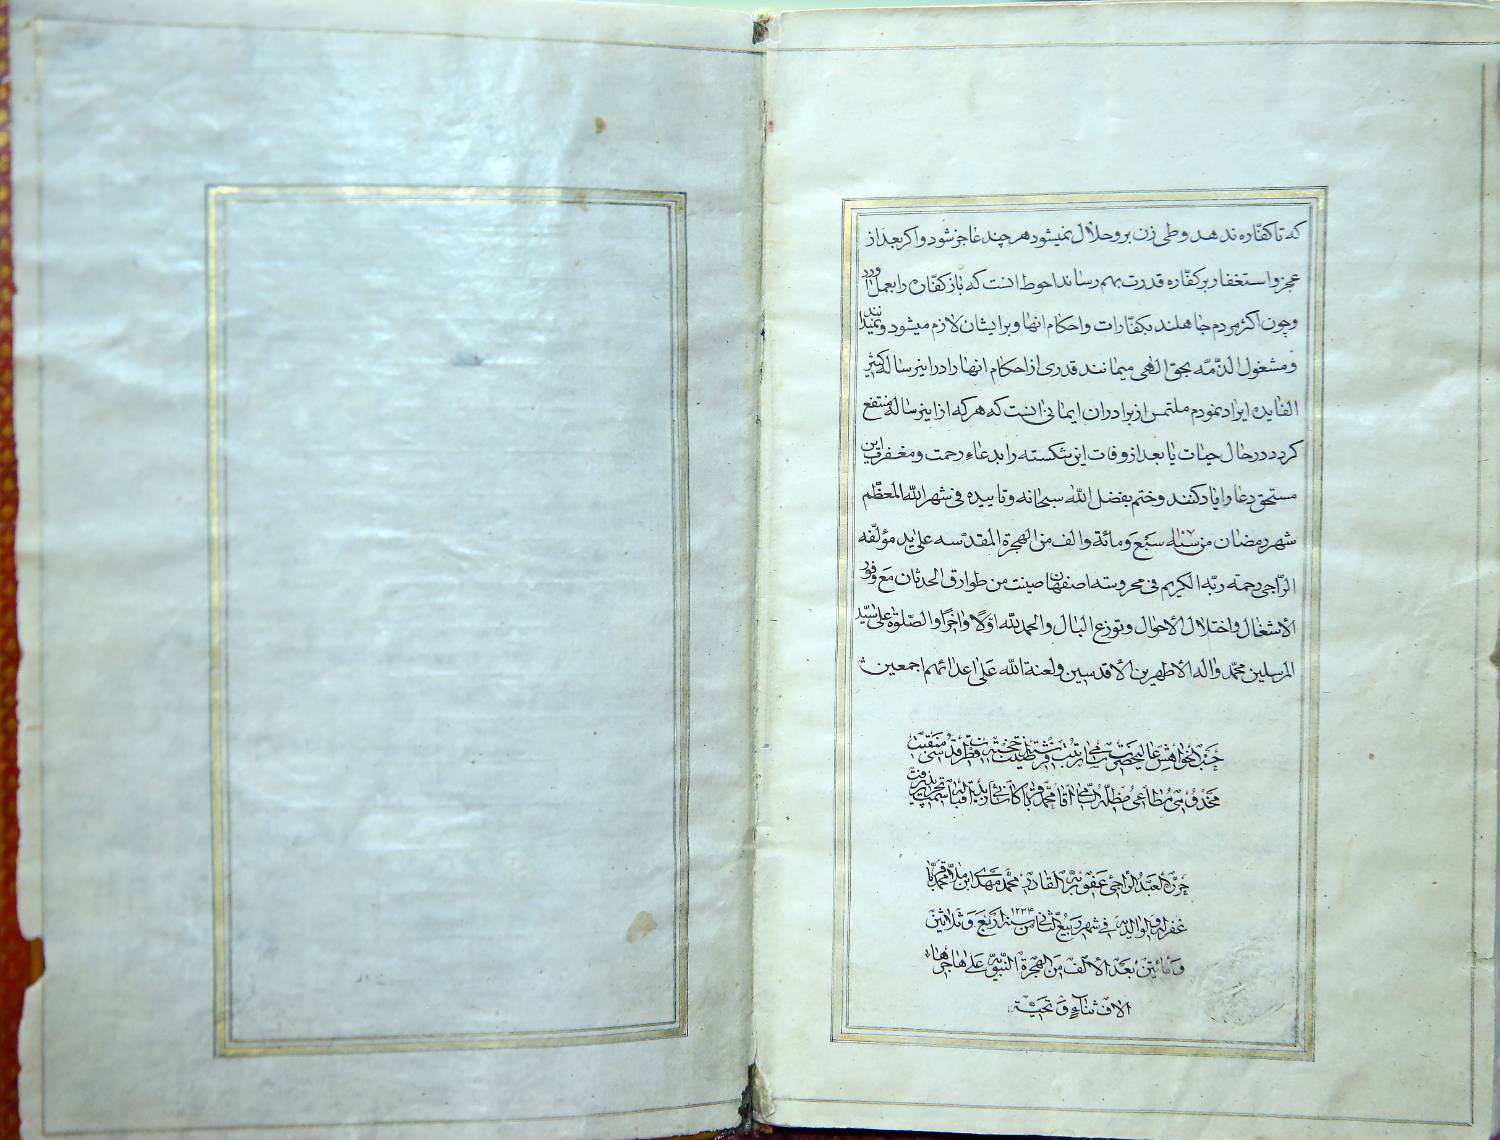 که تا کفّاره ندهد وطی زن برو حلال نمیشود هر چند عاجز شود و اکر بعد از
عجز و استغفار بر کفّاره قدرت بهم رساند احوط انست که باز کفّاره را بعمل اورد
و چون اکثر مردم جاهلند بکفّارات و احکام انها و بر ایشان لازم میشود و نمیدانند
و مشغول الذّمّه بحق الهی میمانند قدری از احکام انها را در اینرساله کثیر
الفایده ایراد نمودم ملتمس از برادران ایمانی انست که هر که از اینرساله منتفع
کردد در حال حیات یا بعد از وفات این شکسته را بدعاء رحمت و مغفرت این
مستحق دعا را یاد کنند و ختم بفضل الله سبحانه و تاییده فی شهر الله المعظّم
شهر رمضان من سنة سبع و مائة و الف من الهجرة المقدسه علی ید مؤلّفه
الرّاجی رحمته ربّه الکریم فی محروسته اصفهان صینت من طوارق الحدثان مع وفور
الاشغال و اختلال الاحوال و توزع البال و الحمد لله اوّلا و اخرا و الصّلوة علی سیّد
المرسلین محمّد و اله الاطهرین الاقدسین و لعنة الله علی اعدائهم اجمعین
حسب الخواهش عالیحضرت
مخدومی مطاعی اقا محمد
حرره العبد الراجی عفو ربه القادر محمد مهدی ابن ملا
غفر له و لوالدیه فی شهر ربیع الثانی من سنه ۱۲۳۴ اربع و ثلاثین
و مأتین بعد الالف من الهجرة النبویه علی هاجرها
الاف ثناء و تحیّة